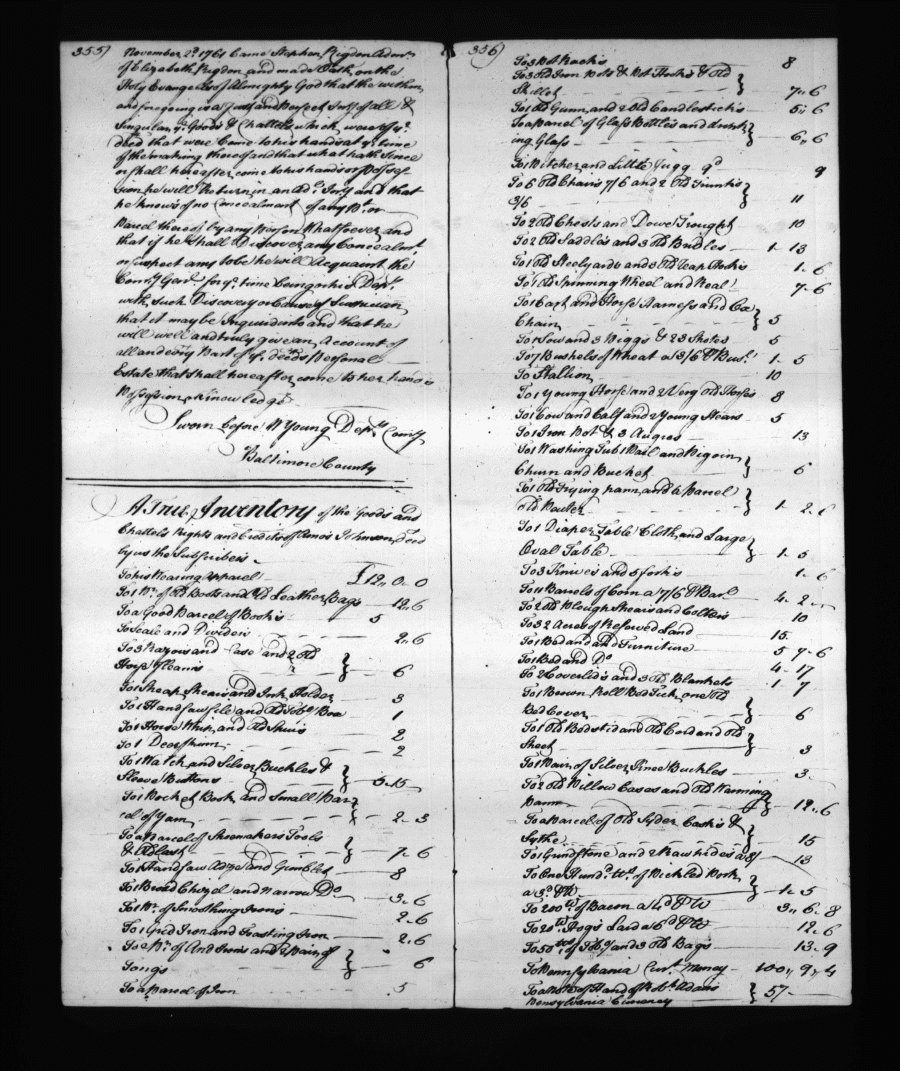 355)
November 2d. 1761 Came Stephen Rigdon Admr.
of Elizabeth Rigdon and made Oath on the
Holy Evangels of Almighty God that the within
and foregoing is a Just and Perfect Invy of all &
Singular ye. Goods & Chattels which were of ye.
dec'd that were Came to his hands at ye. time
of the making thereof and that what hath Since
or shall hereafter come to his hands or Posses
sion he will Return in an Ad. Invy and that
he knows of no concealment of any Pt. or
Parcel thereof by any Person Whatsoever and
that if he shall Discover any Concealmt.
or suspect any to be he will Acquaint the
Comry Genl. for ye. time being or his Depty
with such Discovery or Cause of Suspicion
that it may be Inquired into and that he
will well and truly give an Account of
all and every Part of ye. dec'ds Personal
Estate that shall hereafter come to her hands
Possession or knowledge
Sworn before W Young Depty Comry
Baltimore County
A True Inventory of the Goods and
Chattels Rights and Credits of Amos Johnson decd
by us the Subscribers
To his Wearing Apparel £12,, 0,, 0
To 1 Pr. of Old Boots and Old Leather Bags 12,, 6
To a Good Parcel of Books 5
To Scale and Dividers 2,, 6
To 3 Razors and Case and 2 Old
6
To 1 Sheap Shears and Ink Holder 3
To 1 Handsaw file and Old Tobo. Box 1
To 1 Horse Whip and Old Shirts 2
To 1 Deerskinn 2
To 1 Watch and Silver Buckles &
Sleeve Buttons 5,, 15
To 1 Pocket Book and Small Par
cel of Yarn 2,, 3
To a Parcel of Shoemakers Tools
& Old Last 7,, 6
To 1 Handsaw Adze and Gimblet 8
To 1 Broad Chizel and Narrow Do 3,, 6
To 1 Pr. of Smoothing Irons 2,, 6
To 1 Grid Iron and Toasting Iron 2,, 6
To a Pr. of And Irons and 2 Pair of
Tongs 6
To a Parcel of Iron 5
356)
To 3 Pot Racks 8
To 3 Old Iron Pots & Pot Hooks & Old
Skillet 7,, 6
To 1 Old Gunn and 2 Old Candlesticks 5,, 6
To a Parcel of Glass Bottles and drink
ing Glass 6,, 6
To 1 Pitcher and Little Jugg 9d 9
To 6 Old Chairs 7/6 and 2 Old Trunks
3/6 11
To 2 Old Chests and Dowe Trought 10
To 2 Old Saddles and 3 Old Bridles 1,, 13
To 1 Old Steelyards and 3 Old Reap Hooks 1,, 6
To 1 Old Spinning Wheel and Real 7,, 6
To 1 Cart and Horse Harness and Ox
Chain 5
To 1 Sow and 3 Piggs & 23 Shotes 5
To 7 Bushels of Wheat a 3/6 P Bushl 1,, 5
To Stallion 10
To 1 Young Horse and 2 Very Old Horses 8
To 1 Cow and Calf and 2 Young Stears 5
To 1 Iron Pot & 3 Augres 13
To 1 Washing Tub 1 Pail and Pigoin
Churn and Bucket 6
To 1 Old Frying pann and a Parcel
Old Pewter 1,, 2,, 6
To 1 Diaper Table Cloth and Large
Oval Table 1,, 5
To 3 Knives and 5 forks 1,, 6
To 11 Barrels of Corn a 7/6 P Barl 4,, 2
To 2 Old Plough Shears and Colters 10
To 32 Acres of Reserved Land 15
To 1 Bed and Old Furniture 5,, 7,, 6
To 1 Bed and Do 4,, 17
To 2 Coverlids and 3 Old Blankets 1,, 7
To 1 Brown Roll Bed Tick one Old
Bed Cover 6
To 1 Old Bedsted and Old Cord and Old
Sheet 3
To 1 Pair of Silver Knee Buckles 3
To 2 Old Pillow Cases and Old Warming
Pann 12,, 6
To a Parcel of Old Syder Casks &
Sythe 15
To 1 Grindstone and 2 Raw hides a 8/ 13
To One Hundd. Wt. of Pickled Pork
a 3d P lb 1,, 5
To 200 wt of Bacon a 4d P lb 3,, 6,, 8
To 25 wt Hogs Lard a 6d P lb 12,, 6
To 50 wt of Tobo and 3 Old Bags 13,, 9
To Pennsylvania Curt. Money 100,, 9,, 4
To a Note of Hand of Robt. Adams
Pensylvania Currency 57